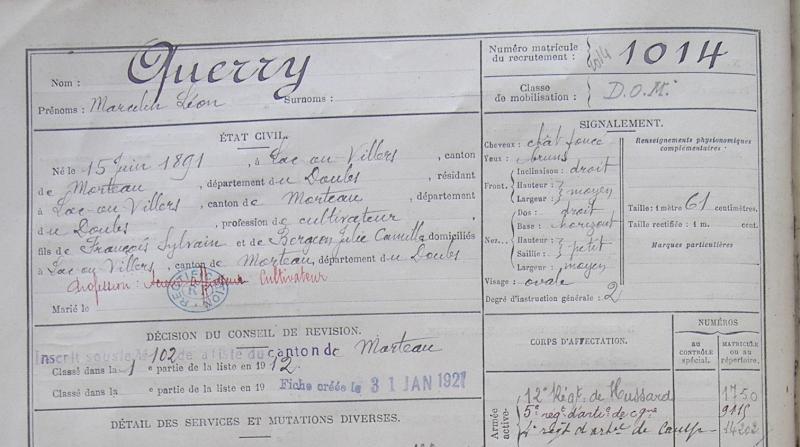 Nom : Querry
Prénoms : Marcelin Léon Surnoms :
ÉTAT CIVIL.
Né le 15 Juin 1891, à Lac ou Villers, canton
de Morteau, département du Doubs, résidant
à Lac-ou-Villers, canton de Morteau, département
du Doubs, profession de cultivateur
fils de François Sylvain et de Julie Camille domiciliés
à Lac ou Villers, canton de Morteau, département du Doubs
Profession : Cultivateur
Marié le
DÉCISION DU CONSEIL DE REVISION.
Inscrit sous le N° 102 de la liste du canton de Morteau
Classé dans la 1e partie de la liste en 1912.
Classé dans la e partie de la liste en 19
Fiche créée le 31 JAN 1927
DÉTAIL DES SERVICES ET MUTATIONS DIVERSES.
Numéro matricule
du recrutement : 1014
Classe
de mobilisation : D.O.M.
SIGNALEMENT.
Cheveux : chât foncé
Yeux : bruns
Front. Inclinaison : droit
Hauteur :
Largeur : moyen
Nez... Dos : droit
Base :
Hauteur :
Saillie : petit
Largeur : moyen
Visage : ovale
Degré d'instruction générale : 2
Renseignements physionomiques
complémentaires.
Taille : 1 mètre 61 centimètres.
Taille rectifiée : 1 m. cent.
Marques particulières
CORPS D'AFFECTATION.
NUMÉROS
AU
CONTRÔLE
spécial.
MATRICULE
ou au
répertoire.
Armée
active.
12e Régt. de Hussard 1750
5e régt d'artie de cgne 9115
régt d'artie de 14202